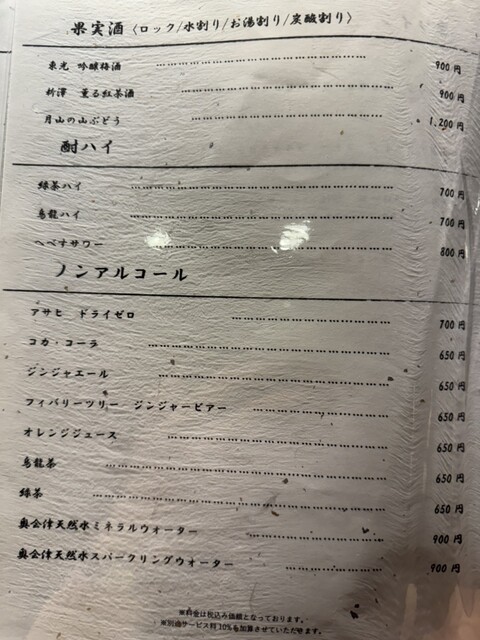 果実酒〈ロック/水割り/お湯割り/炭酸割り〉
東光 吟醸梅酒 900円
新澤 薫る紅茶酒 900円
月山の山ぶどう 1,200円
酎ハイ
緑茶ハイ 700円
烏龍ハイ 700円
へべすサワー 800円
ノンアルコール
アサヒ ドライゼロ 700円
コカ・コーラ 650円
ジンジャエール 650円
フィバリーツリー ジンジャービアー 650円
オレンジジュース 650円
烏龍茶 650円
緑茶 650円
奥会津天然水ミネラルウォーター 900円
奥会津天然水スパークリングウォーター 900円
※料金は税込み価額となっております。
※別途サービス料10%を加算させていただきます。